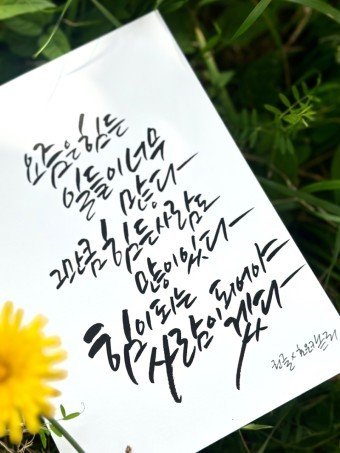 요즘은 힘든
일들이 너무
많다
그만큼 힘든 사람도
많이 있다
힘이 되는
사람이 되어야
겠다